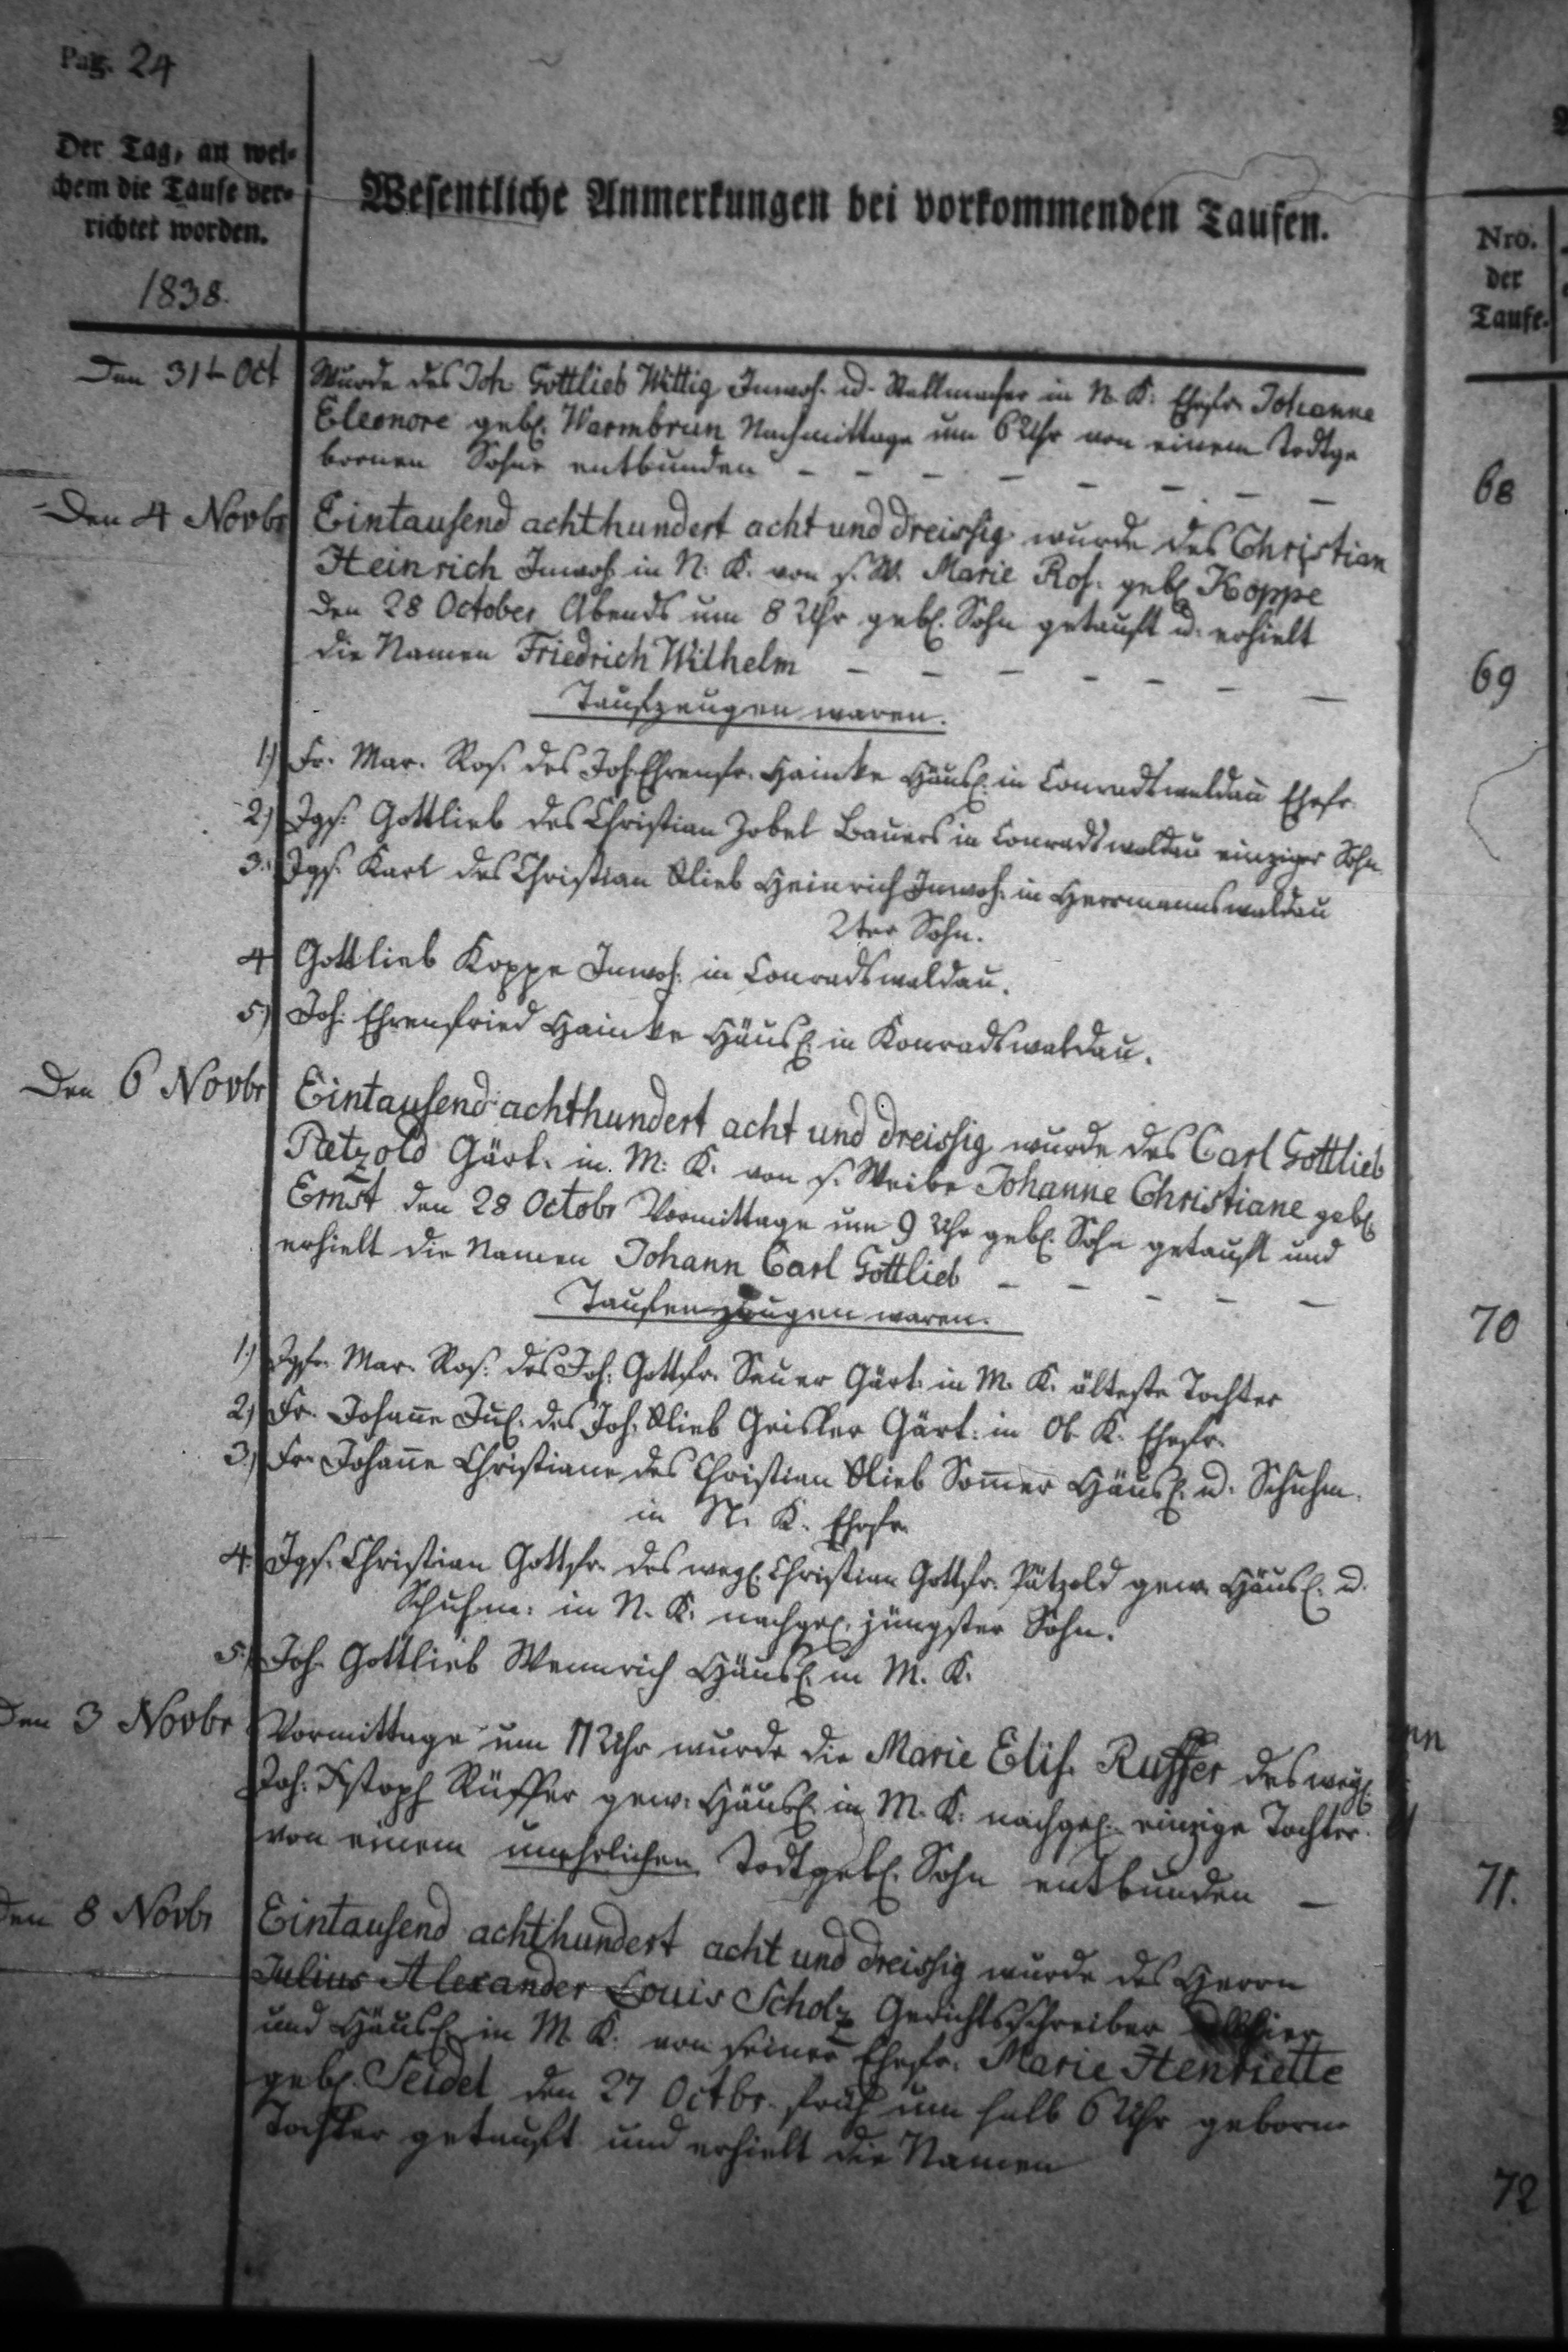 Pag. 24
Der Tag, an wel-
chem die Taufe ver-
richtet worden.
1838.
Wesentliche Anmerkungen bei vorkommenden Taufen.
Nro.
der
Taufe.
Den 31t Oct Wurde des Joh. Gottlieb Wittig Inwoh. u. Stellmacher in N. K. Ehefr. Johanne
Eleonore geb. Warmbrun Nachmittags um 6 Uhr von einem Todtge
bornen Sohne entbunden - - - - - - - -
68
Den 4 Novbr Eintausend achthundert acht und dreissig wurde des Christian
Heinrich Inwoh. in N. K. von s. W. Marie Ros. geb. Koppe
den 28 October Abends um 8 Uhr geb. Sohn getauft u. erhielt
die Namen Friedrich Wilhelm - - - - - - -
69
Taufzeugen waren.
1.) Fr. Mar. Ros. des Joh. Ehrenfr. Hainke Häusl. in Conradswaldau Ehefr.
2.) Jgs. Gottlieb des Christian Zobel Bauers in Conradswaldau einziger Sohn
3.) Jgs. Karl des Christian Glieb Heinrich Inwoh. in Herrmannswaldau
2ter Sohn.
4 Gottlieb Koppe Inwoh. in Conradswaldau.
5.) Joh. Ehrenfried Hainke Häusl. in Konradswaldau.
Den 6 Novbr Eintausend achthundert acht und dreissig wurde des Carl Gottlieb
Pätzold Gärt. in M. K. von s. Weibe Johanne Christiane geb.
Ernst den 28 Octobr Vormittags um 9 Uhr geb. Sohn getauft und
erhielt die Namen Johann Carl Gottlieb - - - - -
70
Taufenzeugen waren.
1.) Jgfr. Mar. Ros. des Joh. Gottfr. Seuer Gärt. in M. K. älteste Tochter
2.) Fr. Johañe Jul. des Joh. Glieb Geisler Gärt. in Ob. K. Ehefr.
3.) Fr. Johañe Christiane des Christian Glieb Som̃er Häusl. u. Schuhm.
in N. K. Ehefr.
4. Jgs. Christian Gottfr. des weyl. Christian Gottfr. Pätzold gew. Häusl. u.
Schuhm. in N. K. nachgel. jüngster Sohn.
5.) Joh. Gottlieb Wennrich Häusl. in M. K.
Den 3 Novbr Vormittags um 11 Uhr wurde die Marie Elis. Ruffer des weyl.
Joh. Xstoph Rüffer gew. Häusl. in M. K. nachgel. einzige Tochter
von einem unehelichen Todtgeb. Sohn entbunden -
71.
Den 8 Novbr Eintausend achthundert acht und dreissig wurde des Herrn
Julius Alexander Louis Scholz Gerichtsschreiber allhier
und Häusl. in M. K. von seiner Ehefr. Marie Henriette
geb. Seidel den 27 Octbr. früh um halb 6 Uhr geborne
Tochter getauft und erhielt die Namen
72